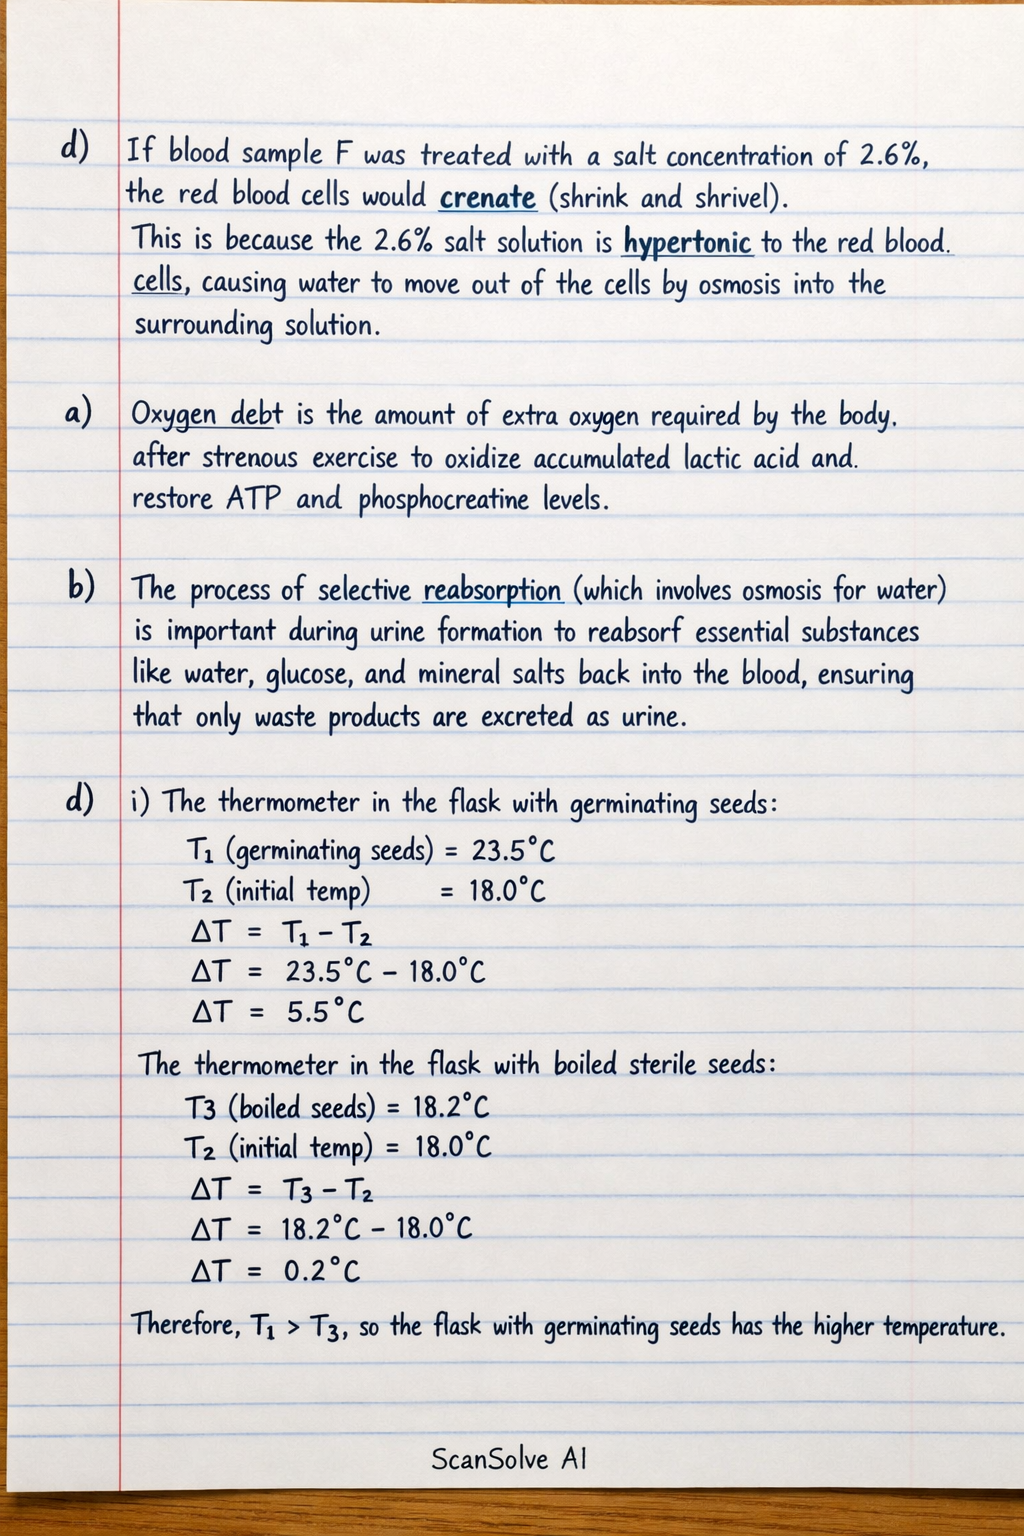 d) If blood sample F was treated with a salt concentration of 2.6%,
the red blood cells would crenate (shrink and shrivel).
This is because the 2.6% salt solution is hypertonic to the red blood.
cells, causing water to move out of the cells by osmosis into the
surrounding solution.
a) Oxygen debt is the amount of extra oxygen required by the body.
after strenous exercise to oxidize accumulated lactic acid and.
restore ATP and phosphocreatine levels.
b) The process of selective reabsorption (which involves osmosis for water)
is important during urine formation to reabsorf essential substances
like water, glucose, and mineral salts back into the blood, ensuring
that only waste products are excreted as urine.
d) i) The thermometer in the flask with germinating seeds:
T₁ (germinating seeds) = 23.5°C
T₂ (initial temp) = 18.0°C
ΔT = T₁ − T₂
ΔT = 23.5°C − 18.0°C
ΔT = 5.5°C
The thermometer in the flask with boiled sterile seeds:
T3 (boiled seeds) = 18.2°C
T₂ (initial temp) = 18.0°C
ΔT = T₃ − T₂
ΔT = 18.2°C − 18.0°C
ΔT = 0.2°C
Therefore, T₁ > T₃, so the flask with germinating seeds has the higher temperature.
ScanSolve AI